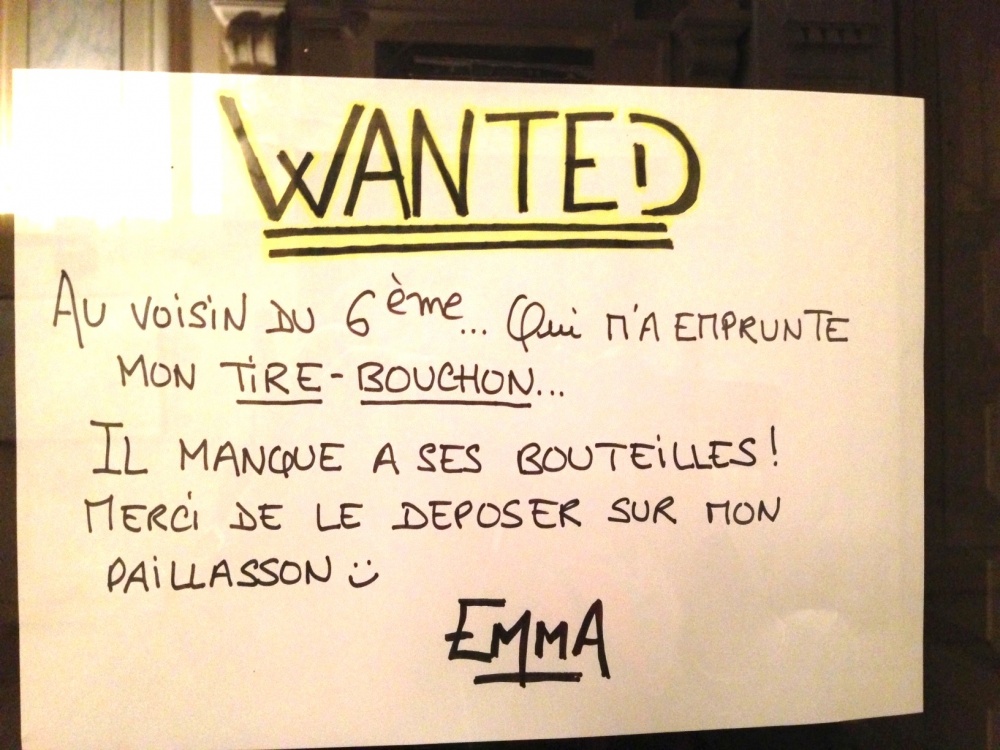 WANTED
AU VOISIN DU 6ème... Qui M'A EMPRUNTE
MON TIRE-BOUCHON...
IL MANQUE A SES BOUTEILLES!
MERCI DE LE DEPOSER SUR MON
PAILLASSON
EMMA